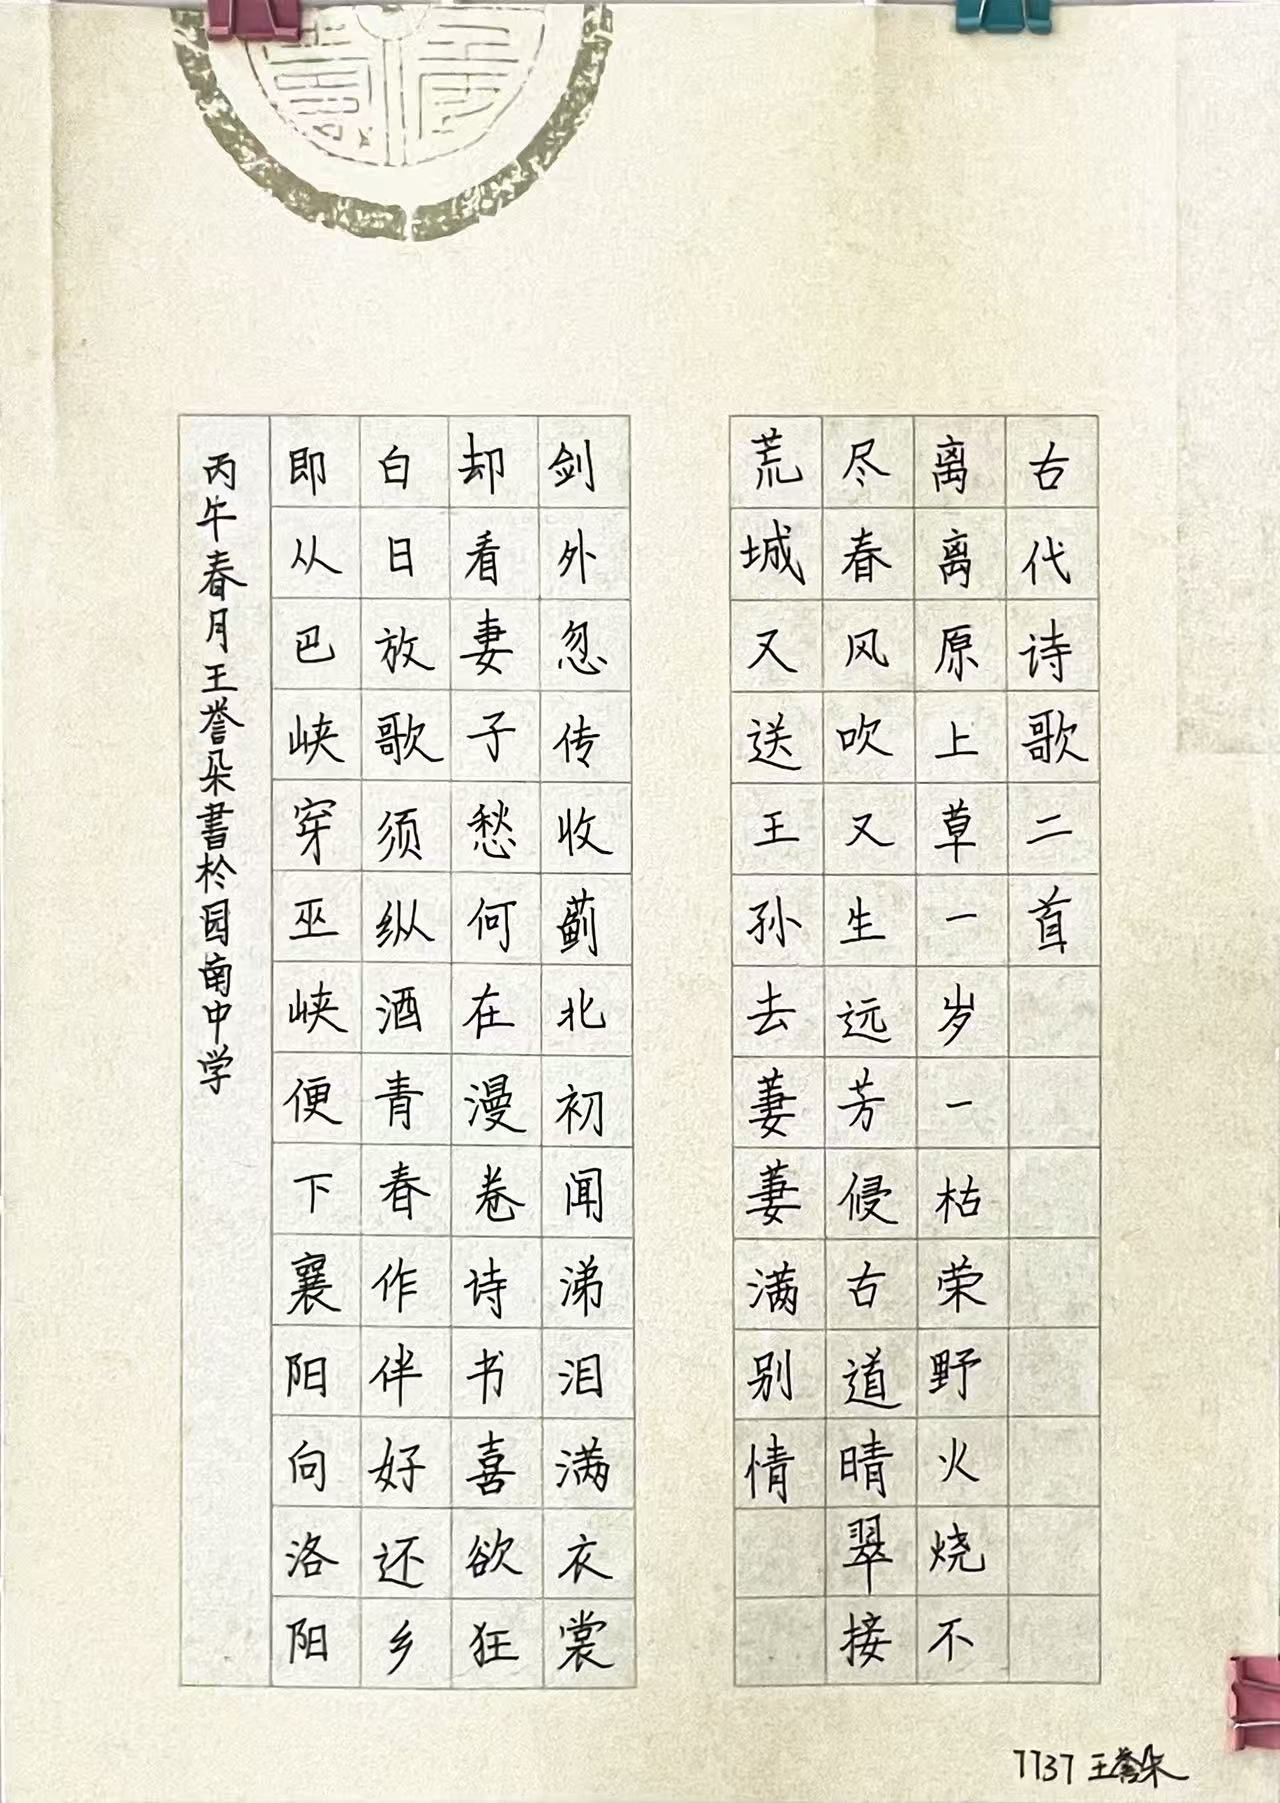 古代诗歌二首
离离原上草一岁一枯荣野火烧不
尽春风吹又生远芳侵古道晴翠接
荒城又送王孙去萋萋满别情
剑外忽传收蓟北初闻涕泪满衣裳
却看妻子愁何在漫卷诗书喜欲狂
白日放歌须纵酒青春作伴好还乡
即从巴峡穿巫峡便下襄阳向洛阳
丙午春月王誉朵書於园南中学
7737 王誉朵